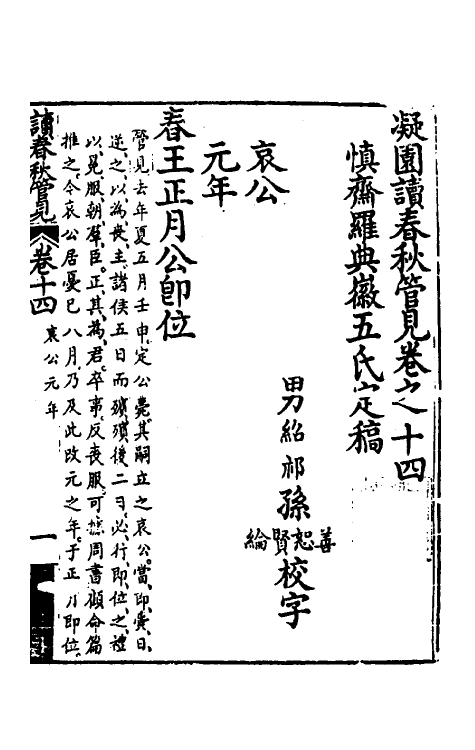 凝園讀春秋管見卷之十四
慎齋羅典徽五氏定稿
男紹祁孫
善
恕
賢
綸
校字
哀公
元年
春王正月公即位
管見去年夏五月壬申定公薨其嗣立之哀公當即喪日
逆之以為喪主諸侯五日而殯殯後二日必行即位之禮
以冕服朝羣臣正其為君卒事反喪服可據周書顧命篇
推之今哀公居憂已八月乃及此改元之年于正月即位
讀春秋管見
卷十四
哀公元年
一